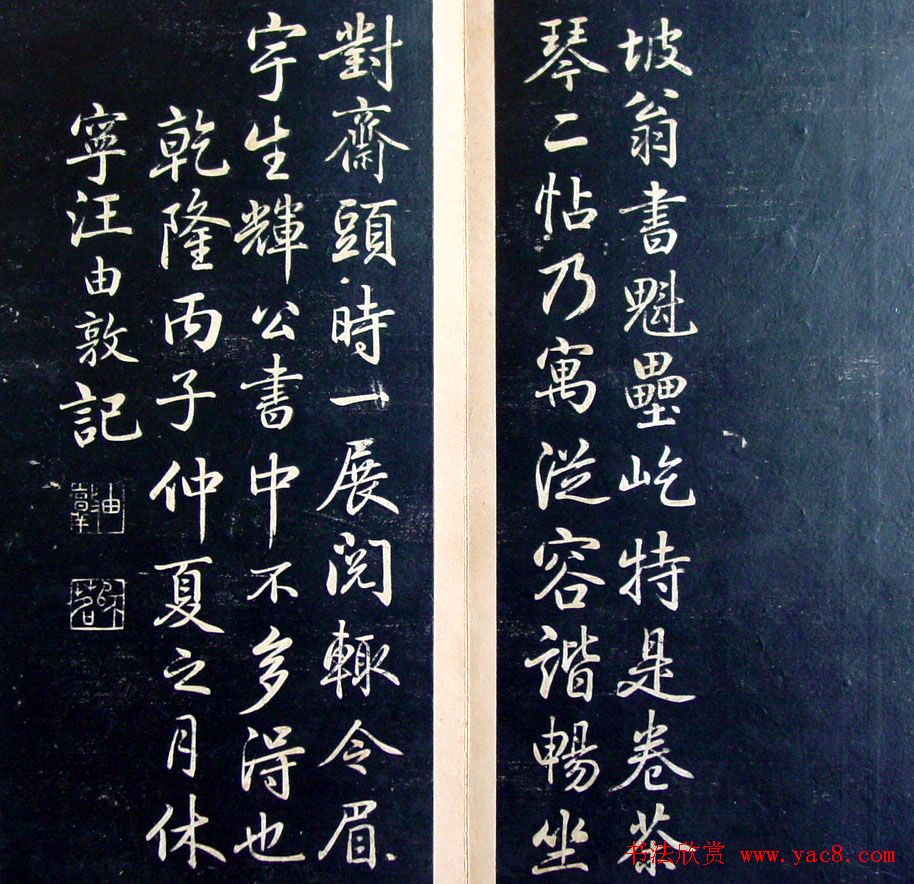 坡翁書魁壘屹特是卷茶
琴二帖乃寓從容諧暢坐
對齋頭時一展閱輒令眉
宇生輝公書中不多得也
乾隆丙子仲夏之月休
寧汪由敦記
由敦
书法欣赏 www.yac8.com